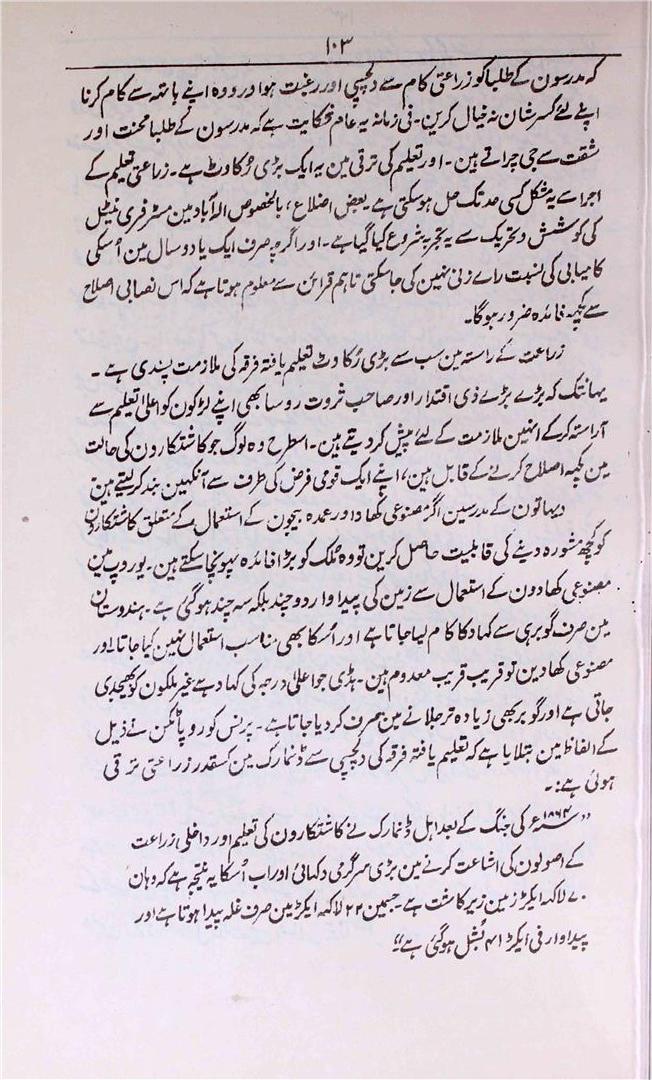 ۱۰۳
کہ مدرسون کے طلبا کو زراعتی کام سے دلچسپی اور رغبت ہو اور وہ اپنے ہاتھ سے کام کرنا
اپنے لئے کسر شان نہ خیال کرین۔ فی زمانہ یہ عام شکایت ہے کہ مدرسون کے طلبا محنت اور
مشقت سے جی چراتے ہین۔ اور تعلیم کی ترقی مین یہ ایک بڑی رُکاوٹ ہے۔ زراعتی تعلیم کے
اجرا سے یہ مشکل کسی حد تک حل ہو سکتی ہے۔ بعض اضلاع، بالخصوص الہ آباد مین مسٹر فری نیٹل
کی کوشش و تحریک سے یہ تجربہ شروع کیا گیا ہے۔ اور اگرچہ صرف ایک یا دو سال مین اُسکی
کامیابی کی نسبت رائے زنی نہین کی جا سکتی تاہم قرائن سے معلوم ہوتا ہے کہ اس نصابی اصلاح
سے کچھ فائدہ ضرور ہوگا۔
زراعت کے راستہ مین سب سے بڑی رُکاوٹ تعلیم یافتہ فرقہ کی ملازمت پسندی ہے۔
یہانتک کہ بڑے بڑے ذی اقتدار اور صاحب ثروت روسا بھی اپنے لڑکون کو اعلیٰ تعلیم سے
آراستہ کرکے انہین ملازمت کے لئے پیش کر دیتے ہین۔ اسطرح وہ لوگ جو کاشتکارون کی حالت
مین کچھ اصلاح کرنے کے قابل ہین، اپنے ایک قومی فرض کی طرف سے آنکہین بند کر لیتے ہین
دیہاتون کے مدرسین اگر مصنوعی کھاد اور عمدہ بیجون کے استعمال کے متعلق کاشتکارون
کو کچھ مشورہ دینے کی قابلیت حاصل کرین تو وہ مُلک کو بڑا فائدہ پہونچا سکتے ہین۔ یوروپ مین
مصنوعی کھادون کے استعمال سے زمین کی پیداوار دو چند بلکہ سہ چند ہو گئی ہے۔ ہندوستان
مین صرف گوبر ہی سے کہاد کا کام لیا جاتا ہے اور اُسکا بھی مناسب استعمال نہین کیا جاتا اور
مصنوعی کھادین تو قریب قریب معدوم ہین۔ ہڈی جو اعلیٰ درجہ کی کہاد ہے غیر ملکون کو بھیجدی
جاتی ہے اور گوبر بھی زیادہ تر جلانے مین صرف کر دیا جاتا ہے۔ پرنس کوروپاٹکن نے ذیل
کے الفاظ مین بتلایا ہے کہ تعلیم یافتہ فرقہ کی دلچسپی سے ڈنمارک مین کسقدر زراعتی ترقی
ہوئی ہے:۔
”سنہ ۱۸۶۴ء کی جنگ کے بعد اہل ڈنمارک نے کاشتکارون کی تعلیم اور داخلی زراعت
کے اصولون کی اشاعت کرنے مین بڑی سرگرمی دکہائی اور اب اُسکا یہ نتیجہ ہے کہ وہان
۷۰ لاکہہ ایکڑ زمین زیر کاشت ہے۔ جسمین ۲۲ لاکہہ ایکڑ مین صرف غلہ پیدا ہوتا ہے اور
پیداوار فی ایکڑ ۴۱ بُشل ہو گئی ہے“